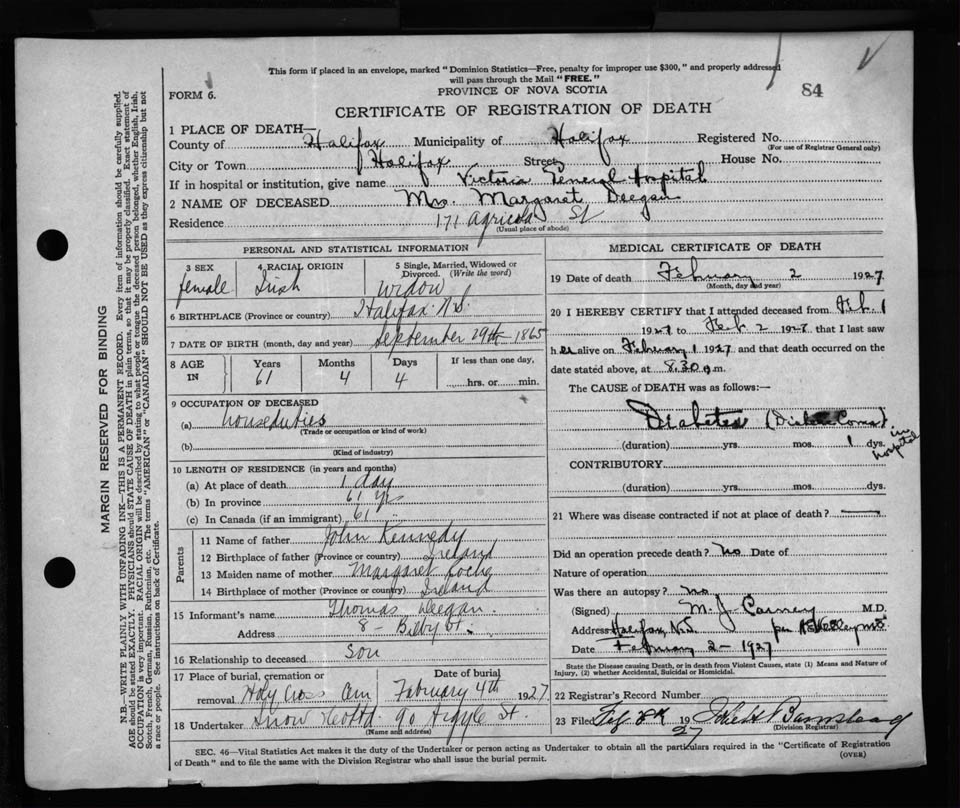 This form if placed in an envelope, marked "Dominion Statistics—Free, penalty for improper use $300," and properly addressed
will pass through the Mail "FREE."
FORM 6.
PROVINCE OF NOVA SCOTIA
84
CERTIFICATE OF REGISTRATION OF DEATH
1 PLACE OF DEATH—
County of Halifax Municipality of Halifax Registered No.
(For use of Registrar General only)
City or Town Halifax Street House No.
If in hospital or institution, give name Victoria General Hospital
2 NAME OF DECEASED Mrs. Margaret Deegan
Residence 171 Agricola St
(Usual place of abode)
PERSONAL AND STATISTICAL INFORMATION
3 SEX 4 RACIAL ORIGIN 5 Single, Married, Widowed or
Divorced. (Write the word)
female Irish Widow
6 BIRTHPLACE (Province or country) Halifax N.S.
7 DATE OF BIRTH (month, day and year) September 29th 1865
8 AGE IN Years Months Days If less than one day,
61 4 4 hrs. or min.
9 OCCUPATION OF DECEASED
(a) houseduties
(Trade or occupation or kind of work)
(b)
(Kind of industry)
10 LENGTH OF RESIDENCE (in years and months)
(a) At place of death 1 day
(b) In province 61 yrs
(c) In Canada (if an immigrant) 61 "
Parents
11 Name of father John Kennedy
12 Birthplace of father (Province or country) Ireland
13 Maiden name of mother Margaret Roche
14 Birthplace of mother (Province or country) Ireland
15 Informant's name Thomas Deegan
Address 8 - Bilby St.
16 Relationship to deceased Son
17 Place of burial, cremation or Date of burial
removal Holy Cross Cem February 4th 1927
18 Undertaker Snow & Co Ltd 90 Argyle St.
(Name and address)
MEDICAL CERTIFICATE OF DEATH
19 Date of death February 2 1927
(Month, day and year)
20 I HEREBY CERTIFY that I attended deceased from Feb. 1
1927 to Feb 2 1927 that I last saw
her alive on February 1 1927 and that death occurred on the
date stated above, at 8.30 a.m.
The CAUSE of DEATH was as follows:—
Diabetes (Coma)
(duration) yrs. mos. 1 dys. in hospital
CONTRIBUTORY
(duration) yrs. mos. dys.
21 Where was disease contracted if not at place of death? —
Did an operation precede death? No Date of
Nature of operation
Was there an autopsy? No
(Signed) M. J. Carney M.D.
Address Halifax, N.S. per
Date February 2 - 1927
State the Disease causing Death, or in death from Violent Causes, state (1) Means and Nature of
Injury, (2) whether Accidental, Suicidal or Homicidal.
22 Registrar's Record Number
23 Filed 19 27 Barnstead
(Division Registrar)
SEC. 46—Vital Statistics Act makes it the duty of the Undertaker or person acting as Undertaker to obtain all the particulars required in the "Certificate of Registration
of Death" and to file the same with the Division Registrar who shall issue the burial permit.
(OVER)
MARGIN RESERVED FOR BINDING
N.B.—WRITE PLAINLY WITH UNFADING INK—THIS IS A PERMANENT RECORD. Every item of information should be carefully supplied.
AGE should be stated EXACTLY. PHYSICIANS should STATE CAUSE OF DEATH in plain terms, so that it may be properly classified. Exact statement of
OCCUPATION is very important. RACIAL ORIGIN will be described by stating to what people or tongue the deceased person belonged, whether English, Irish,
Scotch, French, German, Russian, Ruthenian, etc. The terms "AMERICAN" or "CANADIAN" SHOULD NOT BE USED as they express citizenship but not
a race or people. See instructions on back of Certificate.